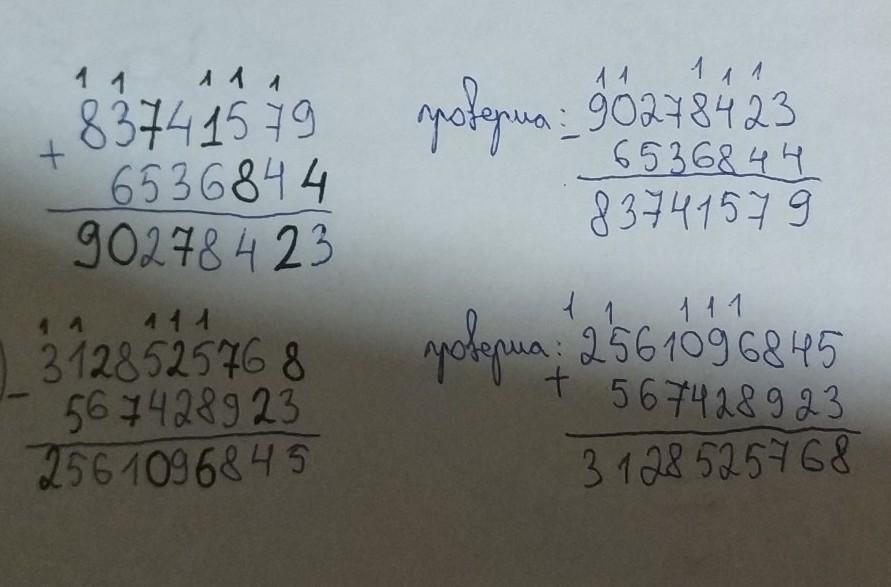 1 1 1 1 1
83741579
+
6536844
90278423
1 1 1 1 1
проверка: 90278423
-
6536844
83741579
1 1 1 1 1
) 3128525768
-
567428923
2561096845
1 1 1 1 1
проверка: 2561096845
+
567428923
3128525768